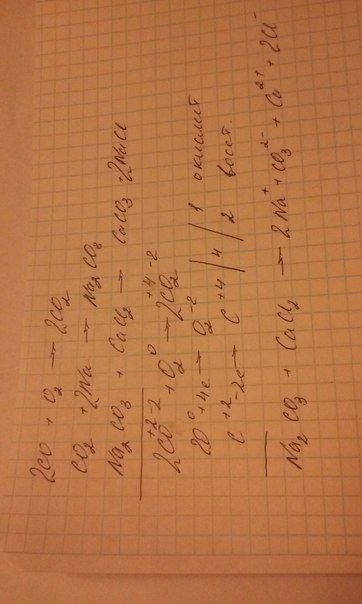 2CO + O₂ → 2CO₂
CO₂ + 2Na → Na₂CO₃
Na₂CO₃ + CaCl₂ → CaCO₃ 2NaCl
2C⁺²O⁻² + O₂⁰ → 2C⁺⁴O₂⁻²
2O⁰ +4e → O₂⁻² | 4 | 1 окислит
C⁺² -2e → C⁺⁴ | 2 восст.
Na₂CO₃ + CaCl₂ → 2Na⁺ + CO₃²⁻ + Ca²⁺ + 2Cl⁻